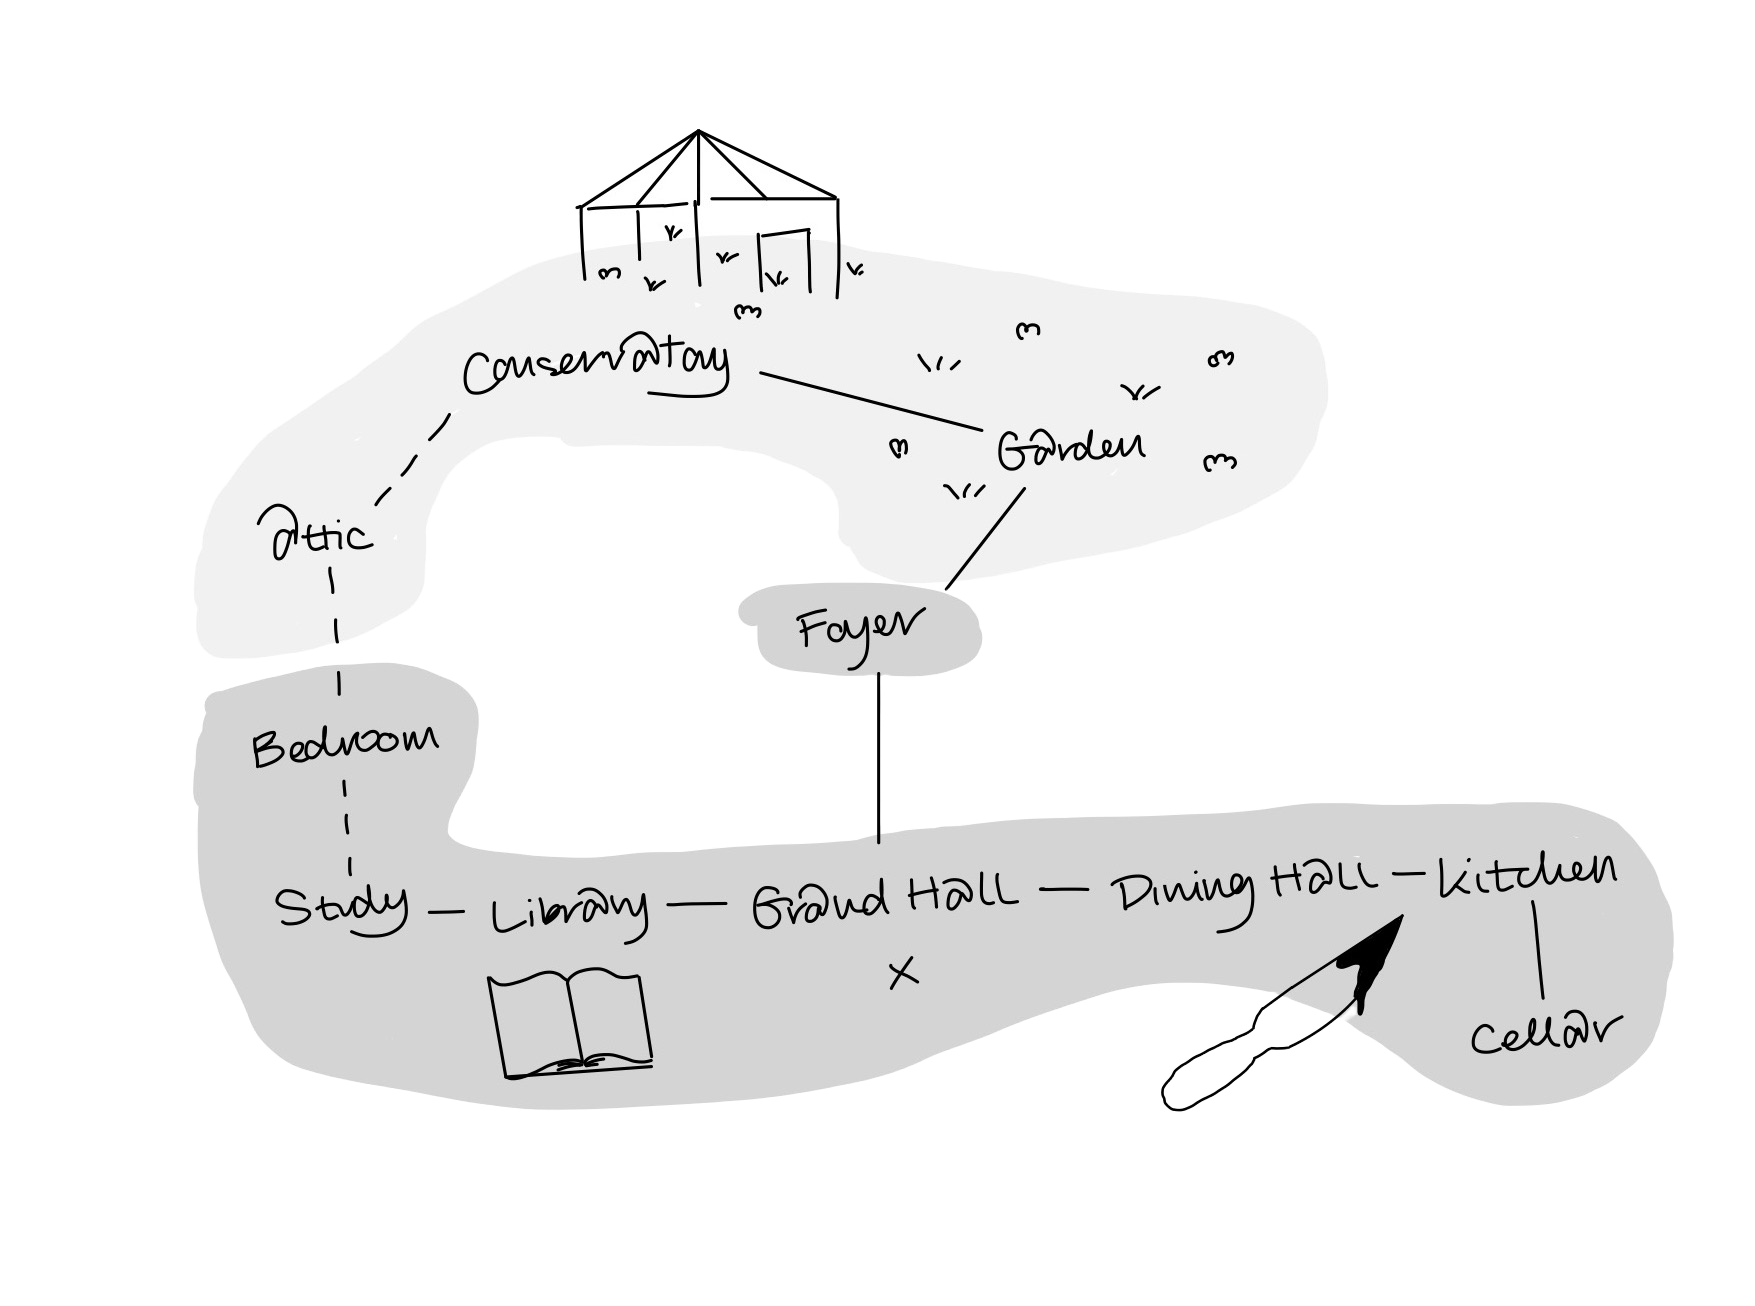 Conservatory
Garden
Attic
Foyer
Bedroom
Study – Library – Grand Hall – Dining Hall – Kitchen
X
Cellar